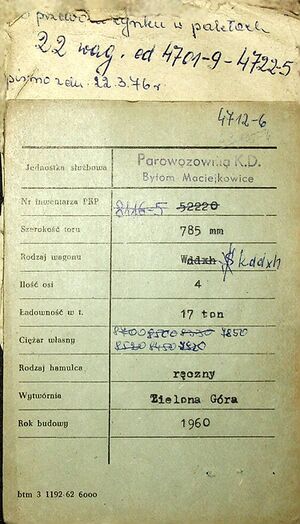 przewozu cynku w paletach
22 wag. od 4701-9 - 4722-5
pismo z dn. 22.3.76 r.
4712-6
Jednostka służbowa Parowozownia K.D.
Bytom Maciejkowice
Nr inwentarza PKP 8116-5 52220
Szerokość toru 785 mm
Rodzaj wagonu Wddxh Skddxh
Ilość osi 4
Ładowność w t. 17 ton
Ciężar własny 8500 7850
8520 8450
Rodzaj hamulca ręczny
Wytwórnia Zielona Góra
Rok budowy 1960
btm 3 1192-62 6000